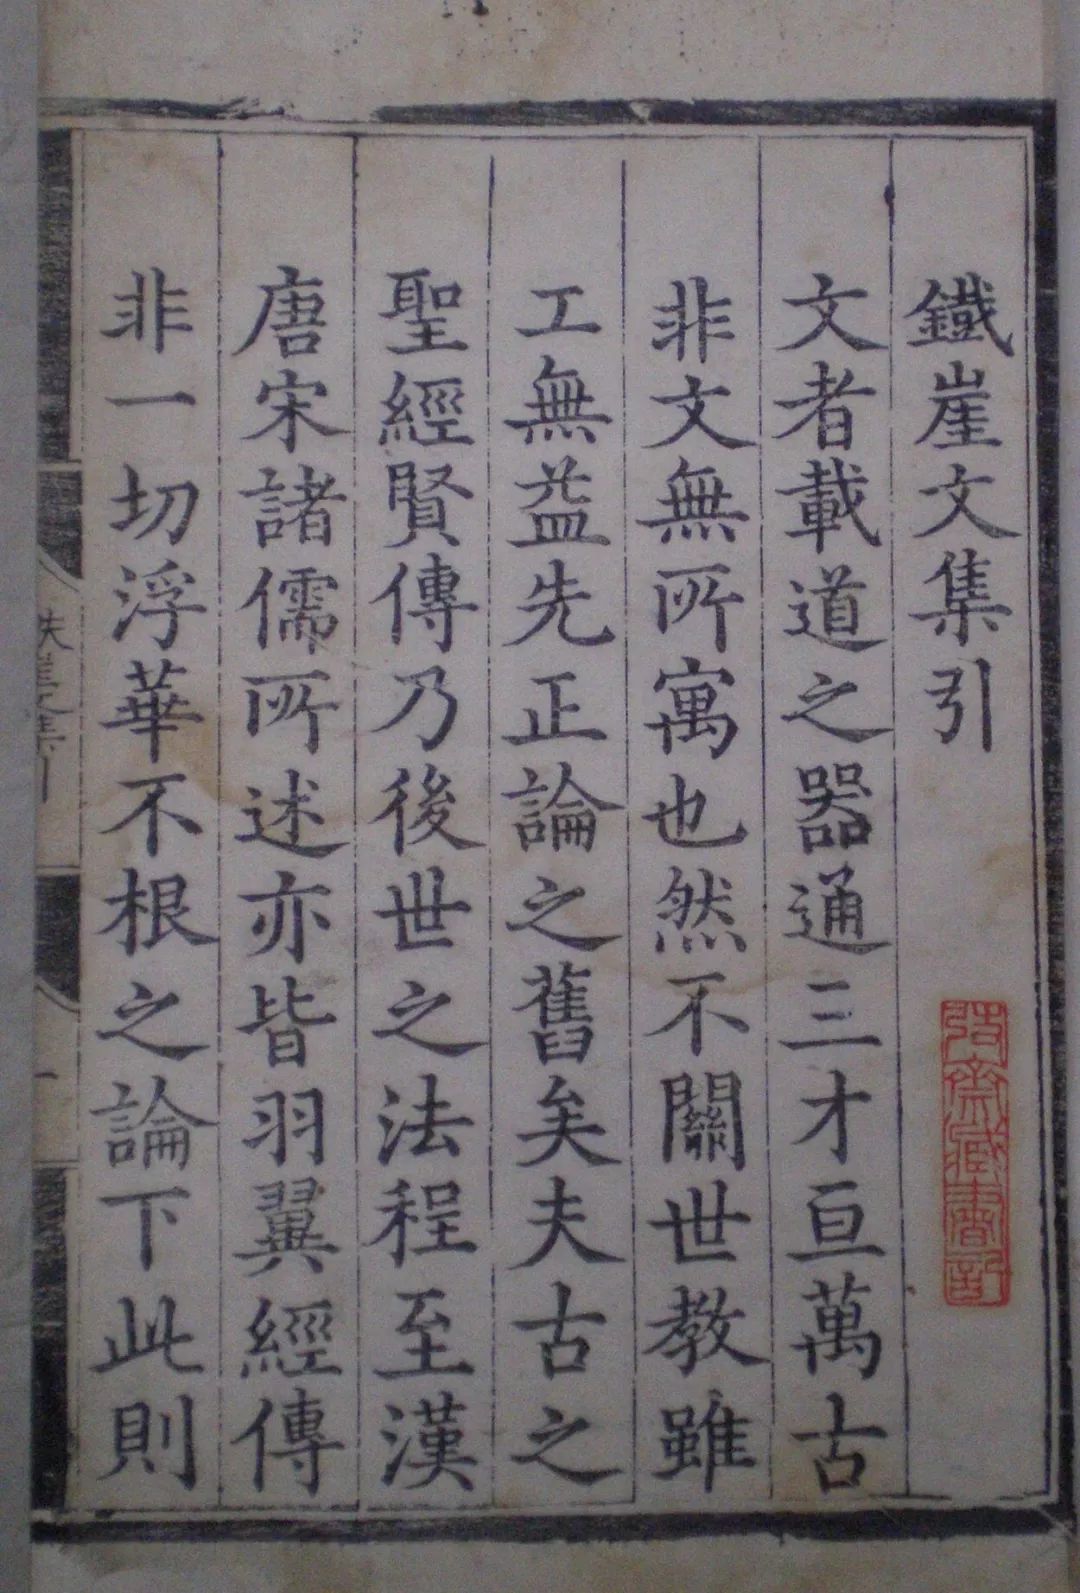 鐵崖文集引
文者載道之器通三才亘萬古
非文無所寓也然不關世教雖
工無益先正論之舊矣夫古之
聖經賢傳乃後世之法程至漢
唐宋諸儒所述亦皆羽翼經傳
非一切浮華不根之論下此則